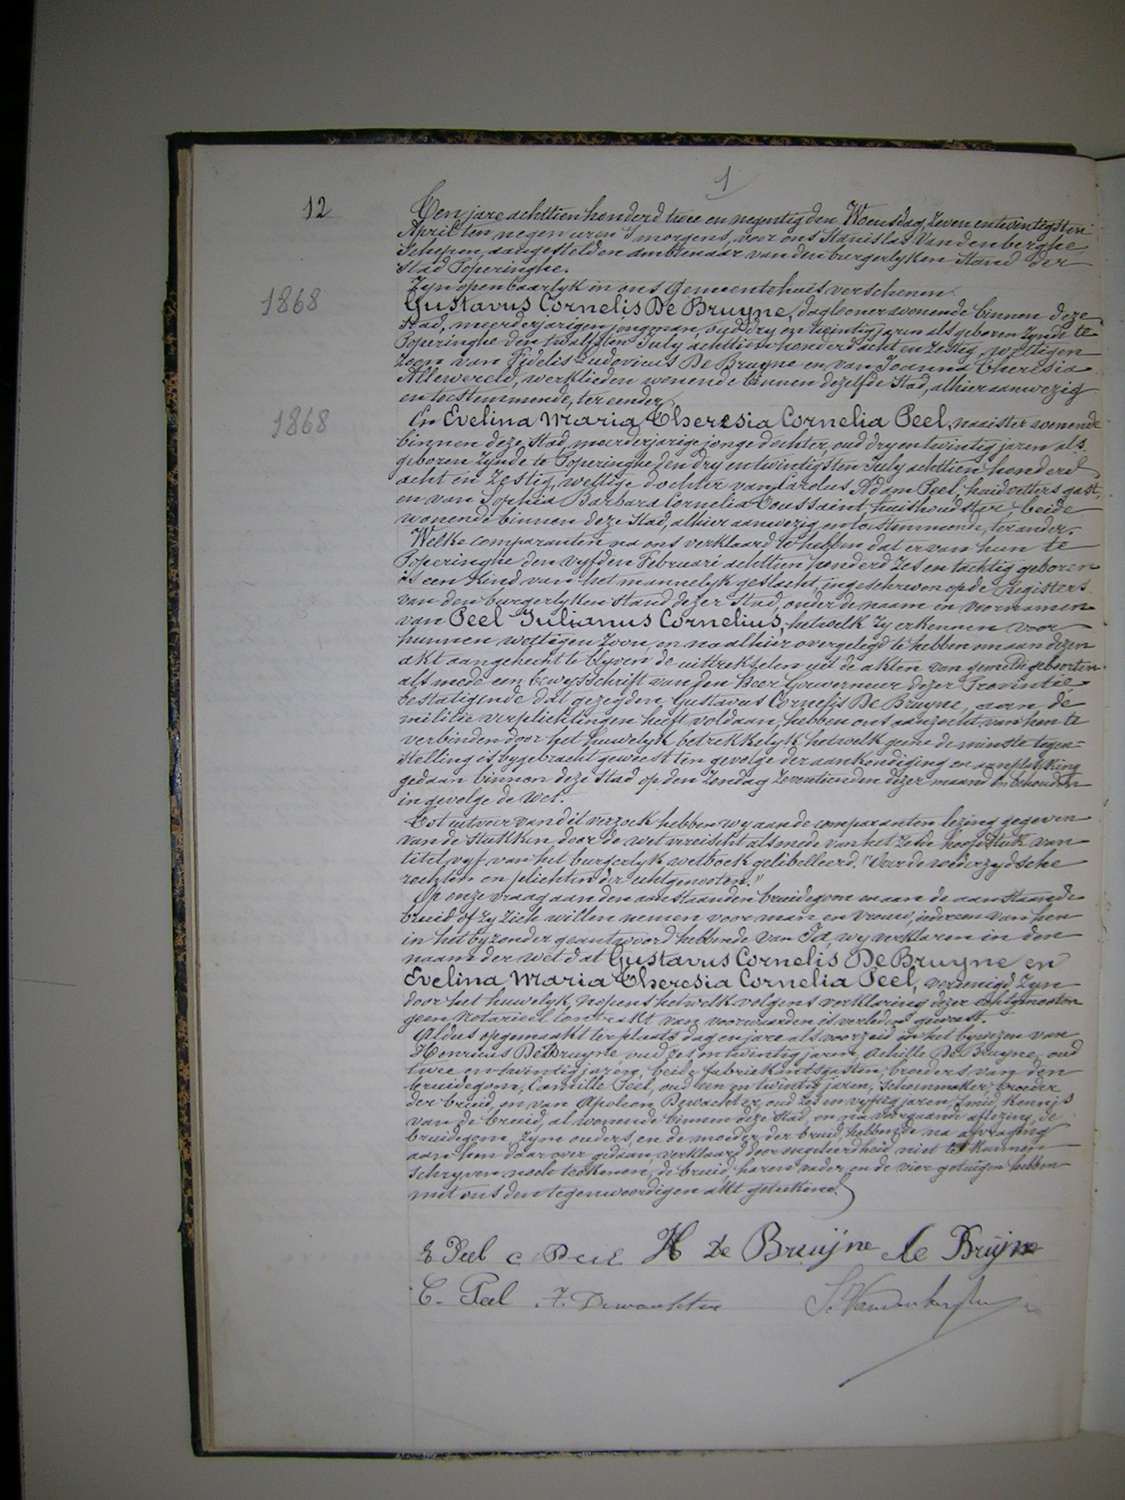 1
12
Ten jare achttien honderd twee en negentig den Woensdag zeven en twintigsten
April ten negen uren 's morgens, voor ons Stanislas Vandenberghe
Schepen, aangestelden ambtenaar van den burgerlyken Stand der
Stad Poperinghe.
Zyn openbaarlyk in ons Gemeentehuis verschenen
1868
Gustavus Cornelis De Bruyne, daglooner wonende binnen deze
Stad, meerderjarigen jongman, oud dry en twintig jaren als geboren zynde te
Poperinghe den twalfsten July achttien honderd acht en zestig, wettigen
Zoon van Fidelis Ludovicus De Bruyne en van Joanna Theresia
Allewereld, werklieden wonende binnen dezelfde Stad, alhier aanwezig
en toestemmende, ter eender,
1868
En Evelina Maria Theresia Cornelia Peel, naaister wonende
binnen deze Stad, meerderjarige jonge dochter, oud dry en twintig jaren als
geboren zynde te Poperinghe den dry en twintigsten July achttien honderd
acht en zestig, wettige dochter van Carolus Adam Peel, huidvetters gast,
en van Sophia Barbara Cornelia Toussaint, huishoudster, beide
wonende binnen deze Stad, alhier aanwezig en toestemmende, ter ander.
Welke comparanten na ons verklaard te hebben dat er van hun te
Poperinghe den vyfden Februari achttien honderd zes en tachtig geboren
is een kind van het mannelyk geslacht, ingeschreven op de registers
van den burgerlyken stand dezer Stad, onder de naam en voornamen
van Peel Julianus Cornelius, hetwelk zy erkennen voor
hunnen wettigen Zoon, en na alhier overgelegd te hebben om aan dezen
akt aangehecht te blyven de uittrekselen uit de akten van gemelde geboorten
als mede een bewysschrift van den Heer Gouverneur dezer Provintie
bestatigende dat gezeyden Gustavus Cornelis De Bruyne, aan de
militie verplichtingen heeft voldaan, hebben ons aanzocht van hen te
verbinden door het huwelyk betrekkelyk hetwelk geene de minste tegen-
stelling is bygebracht geweest ten gevolge der aankondiging en aanplakking
gedaan binnen deze stad op den Zondag zeventienden dezer maand en behouden
in gevolge de wet.
Tot uitvoer van dit verzoek hebben wy aan de comparanten lezing gegeven
van de stukken door de wet vereischt als mede van het zesde hoofdstuk van
titel vyf van het burgerlyk wetboek gelibelleerd "Van de wederzydsche
rechten en plichten der echtgenooten."
Op onze vraag aan den aanstaanden bruidegom en aan de aanstaande
bruid of zy zich willen nemen voor man en vrouw, iedereen van hen
in het byzonder geantwoord hebbende van Ja, wy verklaren in den
naam der wet dat Gustavus Cornelis De Bruyne en
Evelina Maria Theresia Cornelia Peel, vereenigd zyn
door het huwelyk, nopens hetwelk volgens verklaring dezer echtgenooten
geen notarieel contrakt van voorwaarden is verleden geweest.
Aldus opgemaakt ter plaats dag en jare als voorzeid in het bywezen van
Henricus De Bruyne oud zes en twintig jaren, Achille De Bruyne, oud
twee en twintig jaren, beide fabriekantsgasten, broeders van den
bruidegom, Camille Peel, oud een en twintig jaren, schoenmaker, broeder
der bruid, en van Apoleon Dewachter, oud zes en vyftig jaren, smid, kennis
van de bruid, al wonende binnen deze Stad, en na voorgaande aflezing, de
bruidegom, zyne ouders, en de moeder der bruid, hebbende na afvraging
aan hen daar over gedaan, verklaard door ongeleerdheid niet te kunnen
schryven noch teekenen, de bruid, haren vader en de vier getuigen hebben
met ons den tegenwoordigen akt geteekend.
E Peel C Peel H De Bruijne De Bruijne
C. Peel A Dewachter S. Vandenberghe